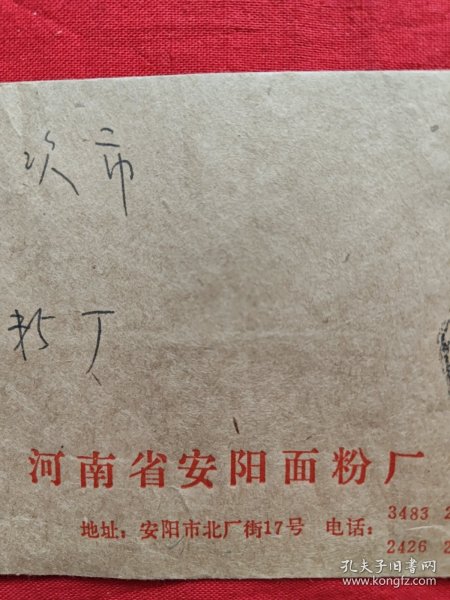 次市
粉厂
河南省安阳面粉厂
地址：安阳市北厂街17号 电话：3483 2
2426 2
孔夫子旧书网
www.kongfz.com